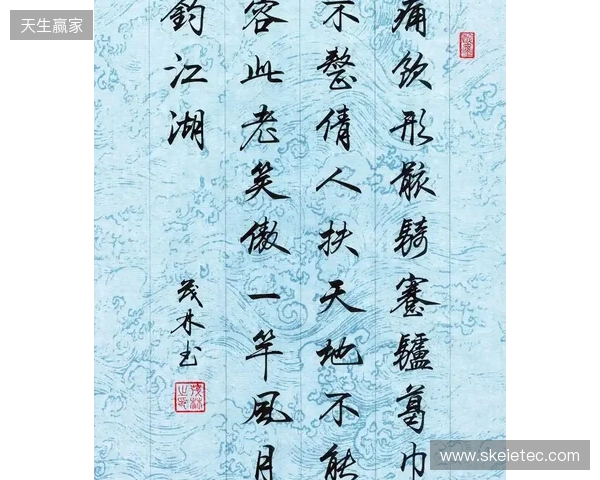 天生赢家
痛飲形骸騎蹇驢葛巾
不整倩人扶天地不能
容此老笑傲一竿風月
釣江湖
茂林书
www.skeietec.com